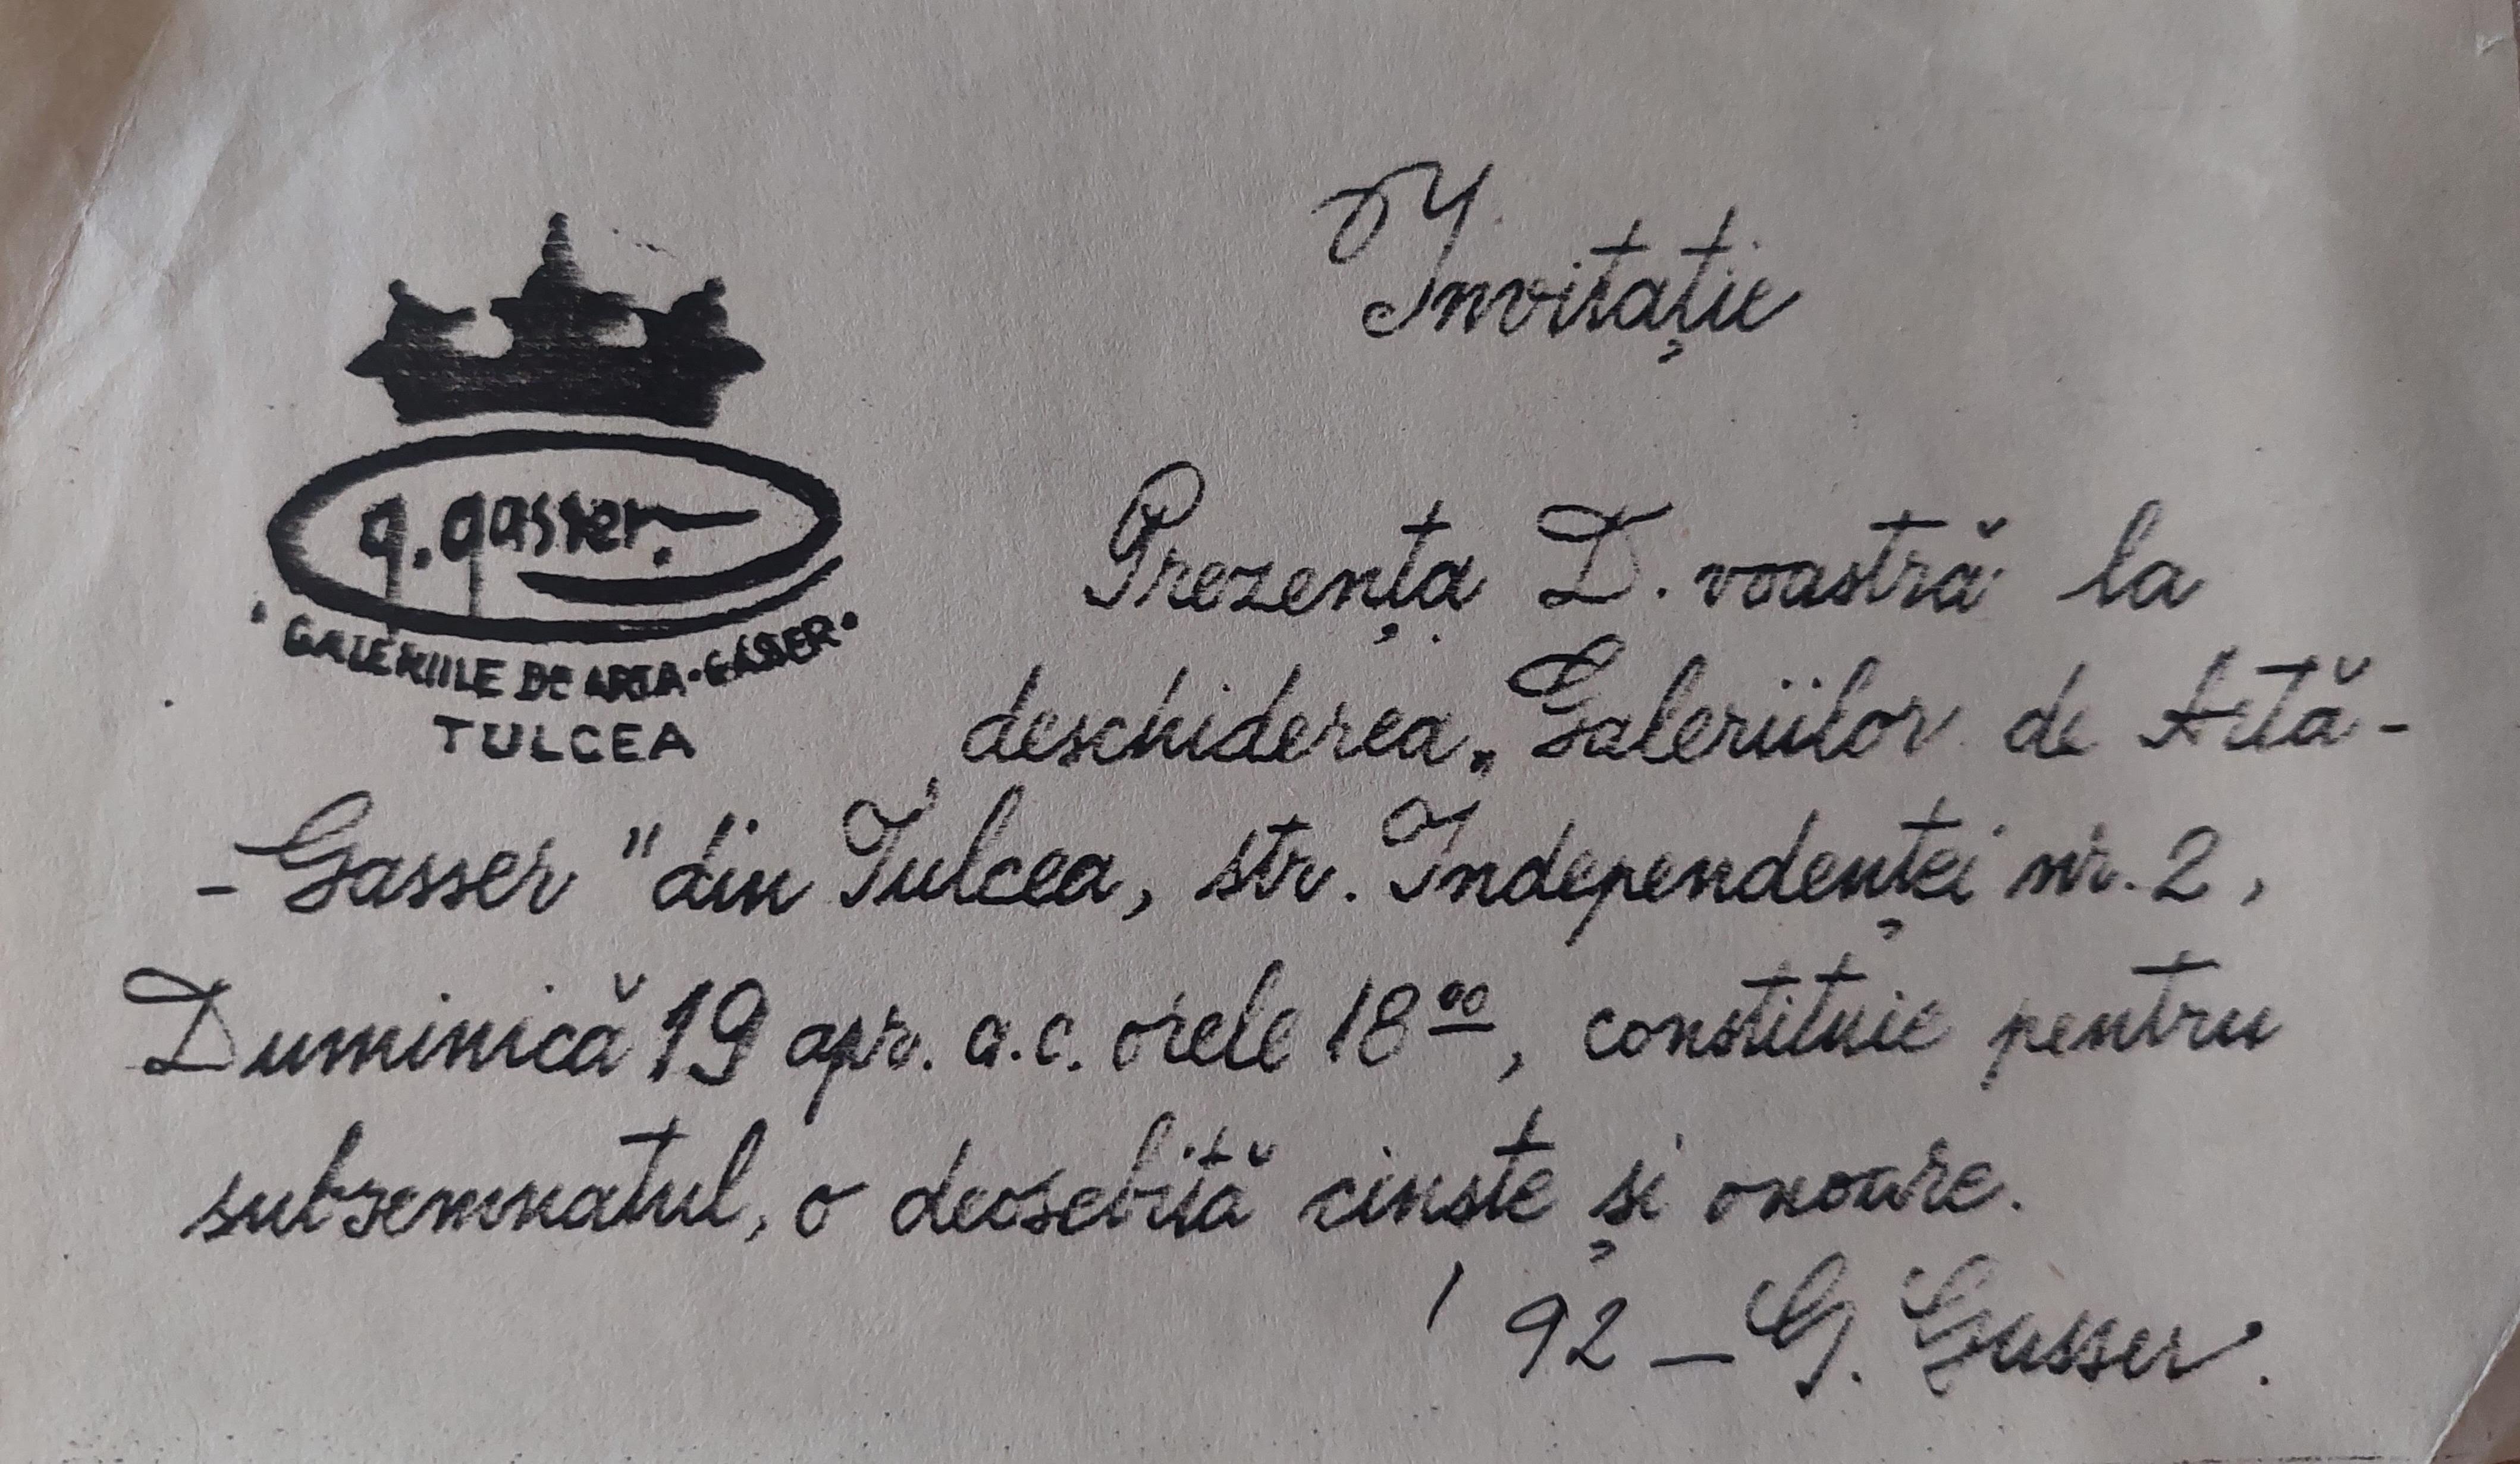 Invitație
g. gasser.
• GALERIILE DE ARTA • GASSER •
TULCEA
Prezența D. voastră la
deschiderea „Galeriilor de Artă-
-Gasser" din Tulcea, str. Independenței nr. 2,
Duminică 19 apr. a.c. orele 18⁰⁰, constituie pentru
subsemnatul, o deosebită cinste și onoare.
'92 — G. Gasser.